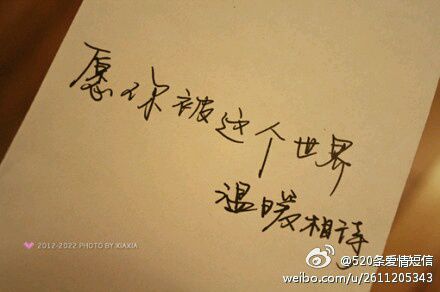 愿你被这个世界
温暖相待
2012-2022 PHOTO BY XIAXIA
@520条爱情短信
weibo.com/u/2611205343